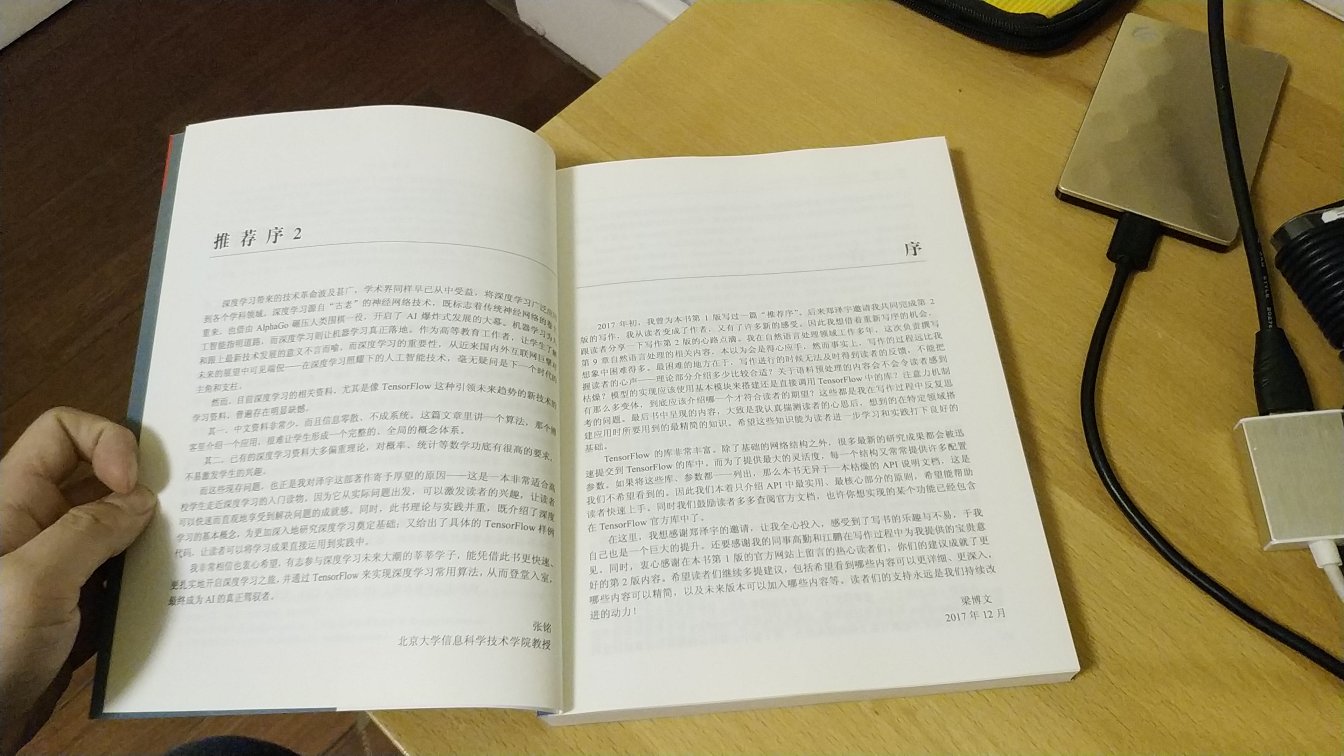 推荐序 2
深度学习带来的技术革命波及甚广，学术界同样早已从中受益，将深度学习广泛应用
到各个学科领域。深度学习源自“古老”的神经网络技术，既标志着传统神经网络的卷土
重来，也借由 AlphaGo 碾压人类围棋一役，开启了 AI 爆炸式发展的大幕。机器学习为人
工智能指明道路，而深度学习则让机器学习真正落地。作为高等教育工作者，让学生了解
和跟上最新技术发展的意义不言而喻，而深度学习的重要性，从近来国内外互联网巨擘对
未来的展望中可见端倪——在深度学习照耀下的人工智能技术，毫无疑问是下一个时代的
主角和支柱。
然而，目前深度学习的相关资料，尤其是像 TensorFlow 这种引领未来趋势的新技术的
学习资料，普遍存在明显缺憾。
其一、中文资料非常少，而且信息零散、不成系统。这篇文章里讲一个算法，那个博
客里介绍一个应用，很难让学生形成一个完整的、全局的概念体系。
其二、已有的深度学习资料大多偏重理论，对概率、统计等数学功底有很高的要求，
不易激发学生的兴趣。
而这些现存问题，也正是我对泽宇这部著作寄予厚望的原因——这是一本非常适合高
校学生走近深度学习的入门读物。因为它从实际问题出发，可以激发读者的兴趣，让读者
可以快速而直观地享受到解决问题的成就感。同时，此书理论与实践并重，既介绍了深度
学习的基本概念，为更加深入地研究深度学习奠定基础；又给出了具体的 TensorFlow 样例
代码，让读者可以将学习成果直接运用到实践中。
我非常相信也衷心希望，有志参与深度学习未来大潮的莘莘学子，能凭借此书更快速、
更扎实地开启深度学习之旅，并通过 TensorFlow 来实现深度学习常用算法，从而登堂入室，
最终成为 AI 的真正驾驭者。
张铭
北京大学信息科学技术学院教授
序
2017 年初，我曾为本书第 1 版写过一篇“推荐序”。后来郑泽宇邀请我共同完成第 2
版的写作，我从读者变成了作者，又有了许多新的感受。因此我想借着重新写序的机会，
跟读者分享一下写作第 2 版的心路点滴。我在自然语言处理领域工作多年，这次负责撰写
第 9 章自然语言处理的相关内容，本以为会是得心应手，然而事实上，写作的过程远比我
想象中困难得多。最困难的地方在于，写作进行的时候无法及时得到读者的反馈，不能把
握读者的心声——理论部分介绍多少比较合适？关于语料预处理的内容会不会令读者感到
枯燥？模型的实现应该使用基本模块来搭建还是直接调用 TensorFlow 中的库？注意力机制
有那么多变体，到底应该介绍哪一个才符合读者的期望？这些都是我在写作过程中反复思
考的问题。最后书中呈现的内容，大致是我认真揣测读者的心思后，想到的在特定领域搭
建应用时所要用到的最精简的知识。希望这些知识能为读者进一步学习和实践打下良好的
基础。
TensorFlow 的库非常丰富。除了基础的网络结构之外，很多最新的研究成果都会被迅
速提交到 TensorFlow 的库中。而为了提供最大的灵活度，每一个结构又常常提供许多配置
参数。如果将这些库、参数都一一列出，那么本书无异于一本枯燥的 API 说明文档，这是
我们不希望看到的。因此我们本着只介绍 API 中最实用、最核心部分的原则，希望能帮助
读者快速上手。同时我们鼓励读者多多查阅官方文档，也许你想实现的某个功能已经包含
在 TensorFlow 官方库中了。
在这里，我想感谢郑泽宇的邀请，让我全心投入，感受到了写书的乐趣与不易，于我
自己也是一个巨大的提升。还要感谢我的同事高勤和江鹏在写作过程中为我提供的宝贵意
见。同时，衷心感谢在本书第 1 版的官方网站上留言的热心读者们，你们的建议成就了更
好的第 2 版内容。希望读者们继续多提建议，包括希望看到哪些内容可以更详细、更深入，
哪些内容可以精简，以及未来版本可以加入哪些内容等。读者们的支持永远是我们持续改
进的动力！
梁博文
2017 年 12 月